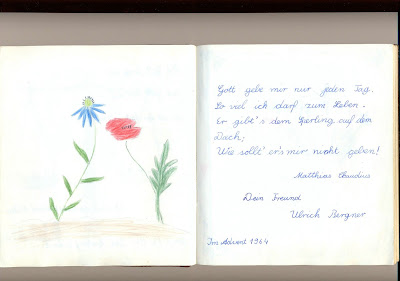 Gott gebe mir nur jeden Tag,
So viel ich darf zum Leben.
Er gibt's dem Sperling auf dem
Dach;
Wie sollt' er's mir nicht geben!
Matthias Claudius
Dein Freund
Ulrich Bergner
Im Advent 1964